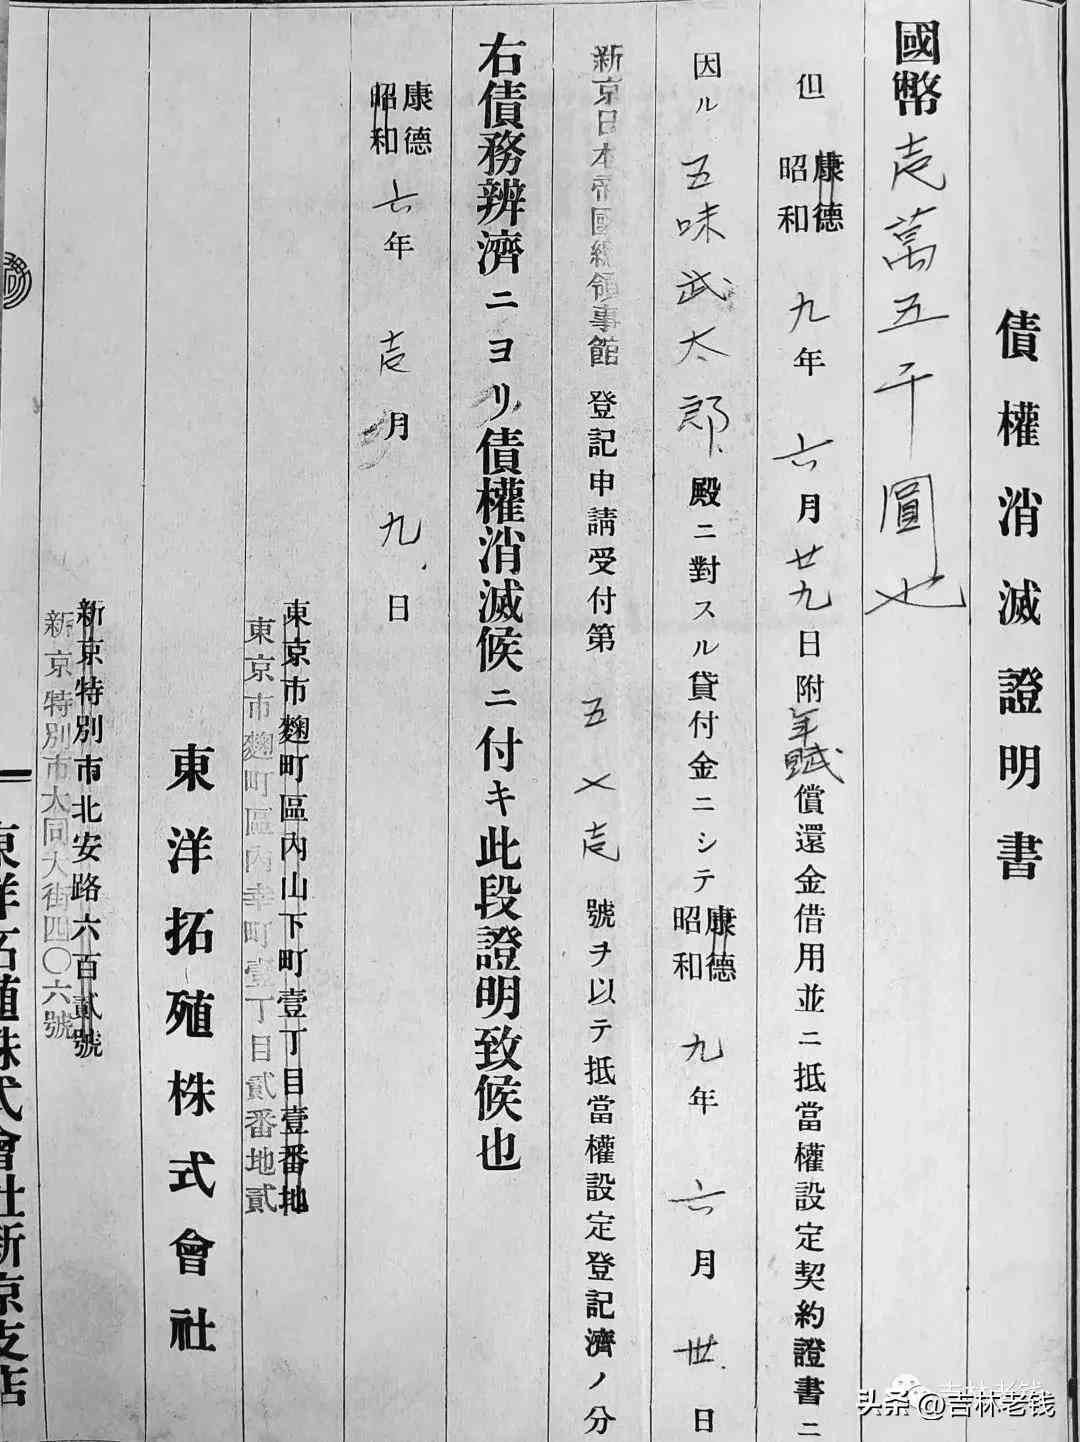 債權消滅證明書
國幣壱萬五千圓也
但康德昭和九年六月廿九日附年賦償還金借用並ニ抵當權設定契約證書ニ
因ル五味武太郎殿ニ對スル貸付金ニシテ康德昭和九年六月卅日
新京日本帝國總領事館登記申請受付第五〆壱號ヲ以テ抵當權設定登記濟ノ分
右債務辨濟ニヨリ債權消滅候ニ付キ此段證明致候也
康德昭和六年壱月九日
東京市麴町區內山下町壹丁目壹番地
東京市麴町區內幸町壹丁目貳番地貳
東洋拓殖株式會社
新京特別市北安路六百貳號
新京特別市大同大街四〇六號
東洋拓殖株式會社新京支店
头条@吉林老钱